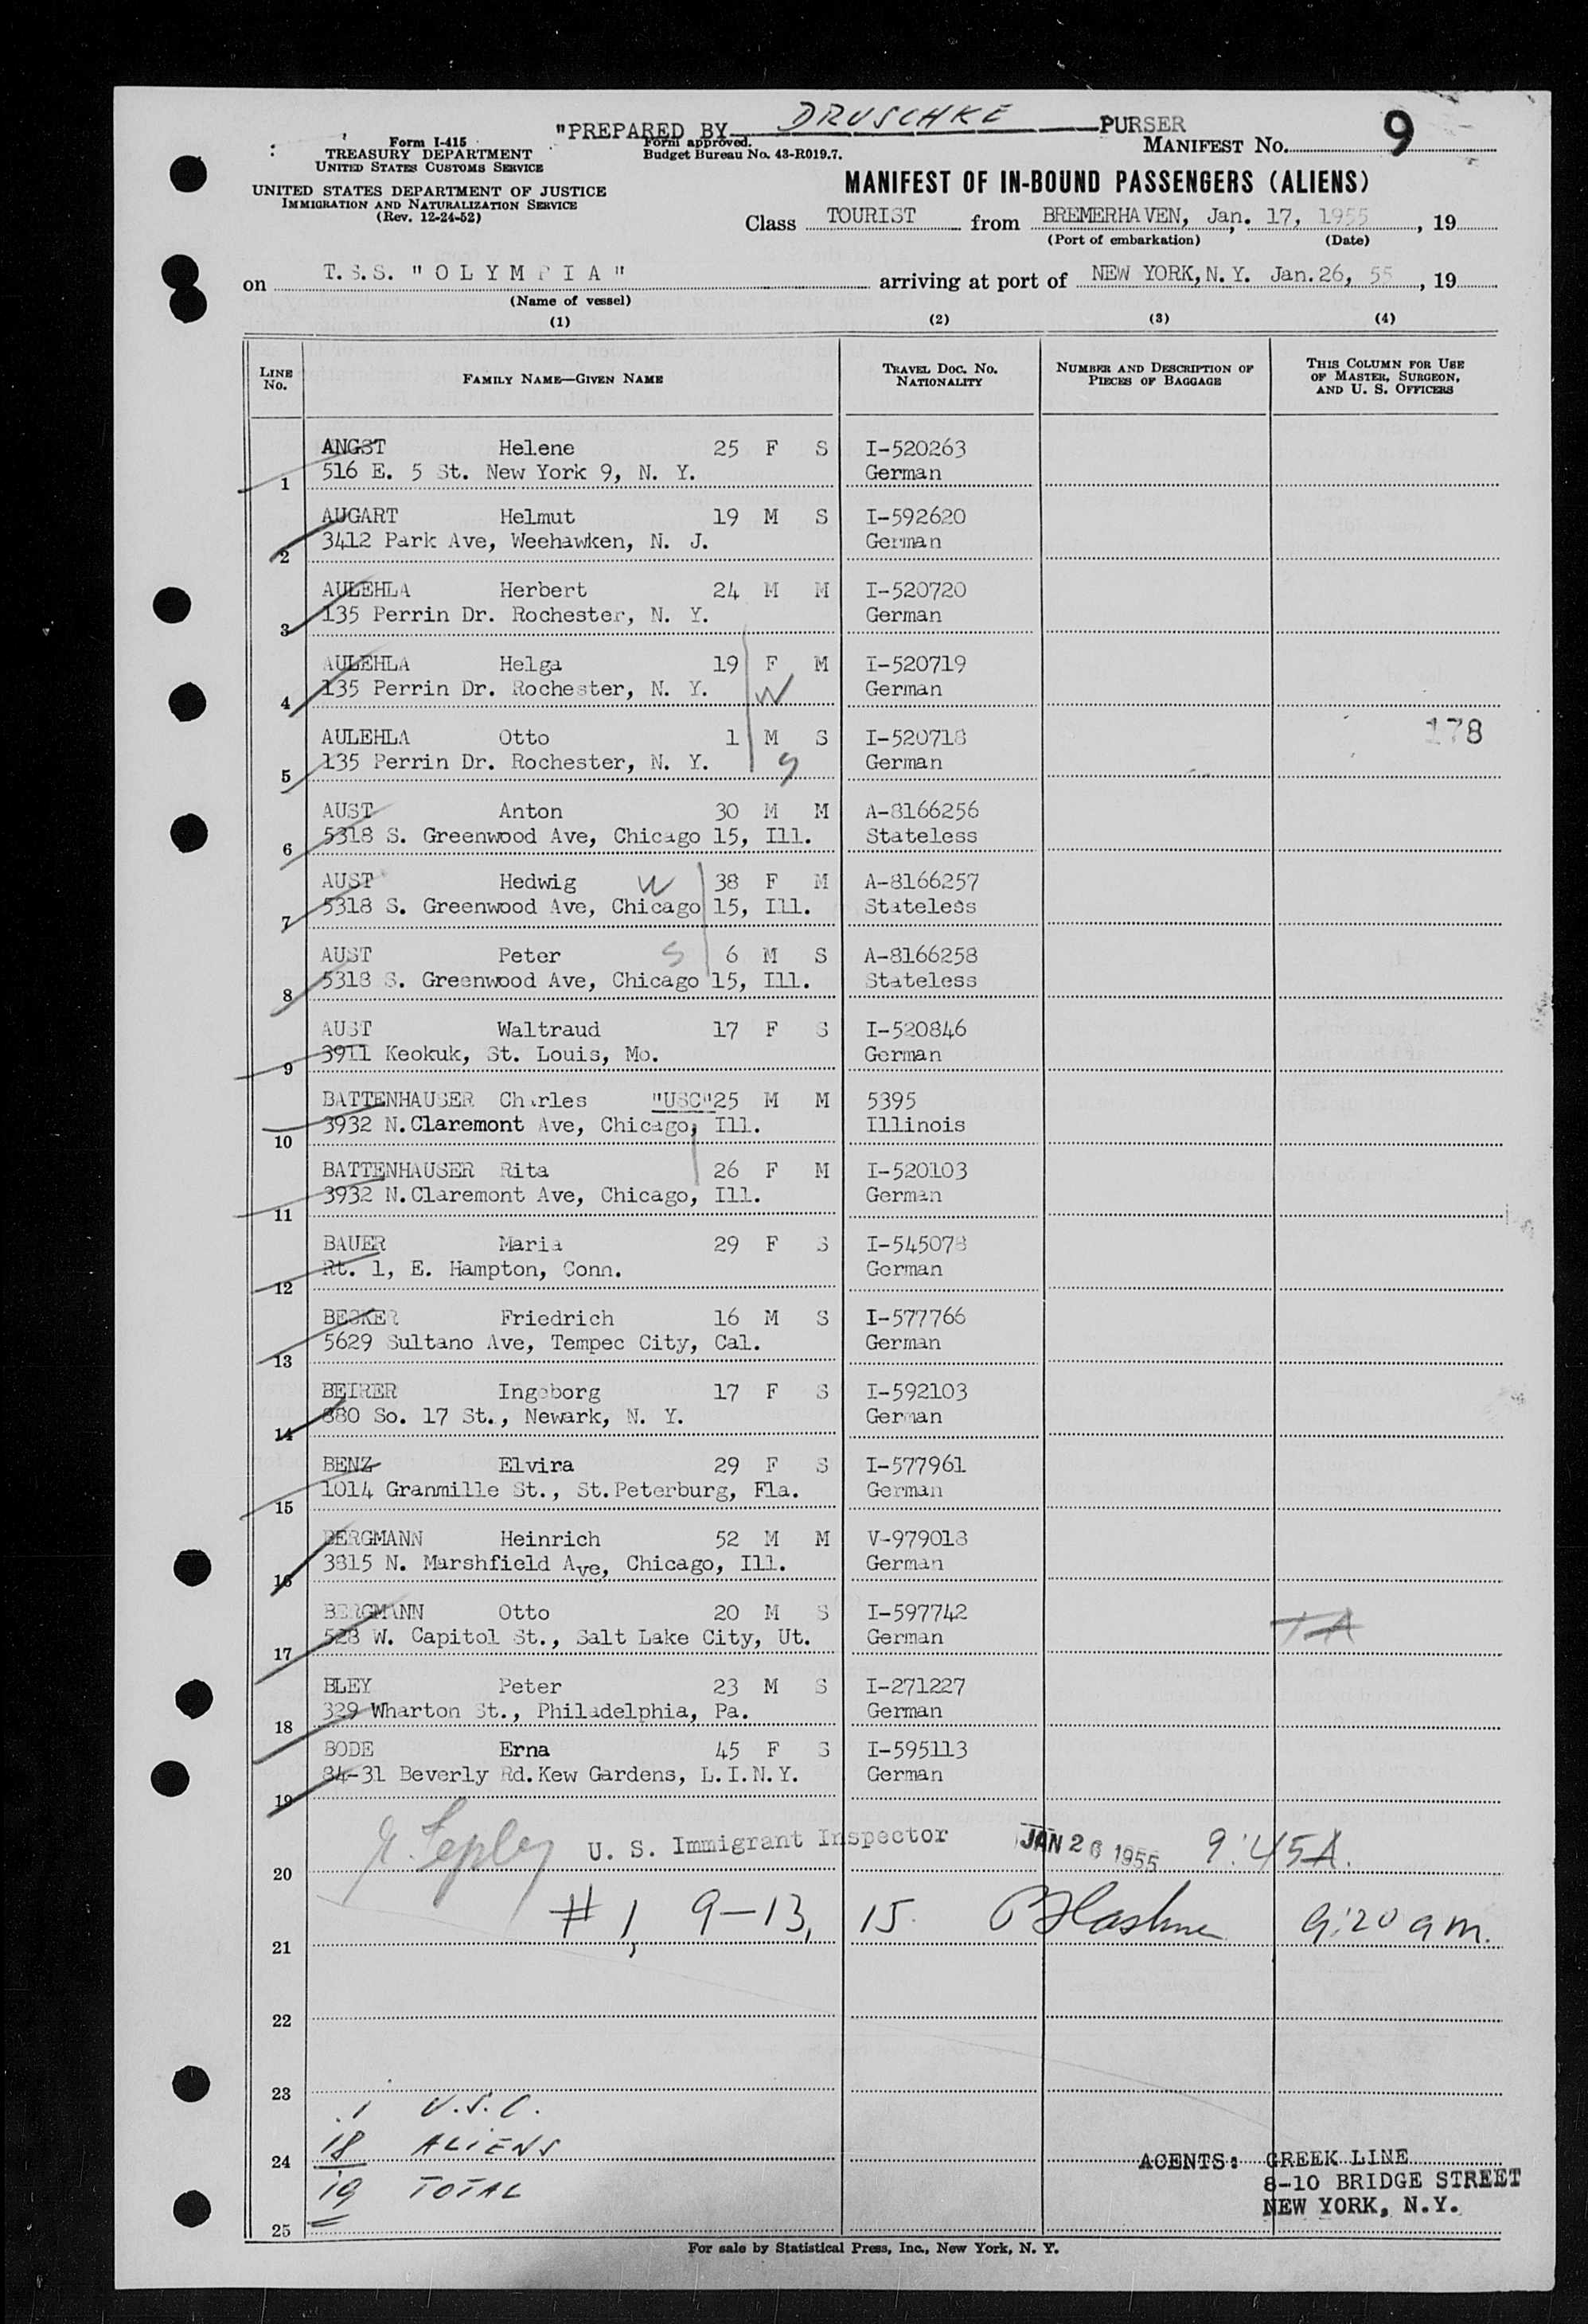 "PREPARED BY DRUSCHKE PURSER
Form I-415
TREASURY DEPARTMENT
UNITED STATES CUSTOMS SERVICE
Form approved.
Budget Bureau No. 43-R019.7.
MANIFEST No. 9
UNITED STATES DEPARTMENT OF JUSTICE
IMMIGRATION AND NATURALIZATION SERVICE
(Rev. 12-24-52)
MANIFEST OF IN-BOUND PASSENGERS (ALIENS)
Class TOURIST from BREMERHAVEN, Jan. 17, 1955, 19
(Port of embarkation) (Date)
on T.S.S. "OLYMPIA" arriving at port of NEW YORK, N.Y. Jan. 26, 55, 19
(Name of vessel)
(1) (2) (3) (4)
LINE No. FAMILY NAME—GIVEN NAME TRAVEL DOC. No. NATIONALITY NUMBER AND DESCRIPTION OF PIECES OF BAGGAGE THIS COLUMN FOR USE OF MASTER, SURGEON, AND U. S. OFFICERS
ANGST Helene 25 F S I-520263
1 516 E. 5 St. New York 9, N. Y. German
AUGART Helmut 19 M S I-592620
2 3412 Park Ave, Weehawken, N. J. German
AULEHLA Herbert 24 M M I-520720
3 135 Perrin Dr. Rochester, N. Y. German
AULEHLA Helga 19 F M I-520719
4 135 Perrin Dr. Rochester, N. Y. W German
AULEHLA Otto 1 M S I-520718 178
5 135 Perrin Dr. Rochester, N. Y. German
AUST Anton 30 M M A-8166256
6 5318 S. Greenwood Ave, Chicago 15, Ill. Stateless
AUST Hedwig W 38 F M A-8166257
7 5318 S. Greenwood Ave, Chicago 15, Ill. Stateless
AUST Peter S 6 M S A-8166258
8 5318 S. Greenwood Ave, Chicago 15, Ill. Stateless
AUST Waltraud 17 F S I-520846
9 3911 Keokuk, St. Louis, Mo. German
BATTENHAUSER Charles "USC" 25 M M 5395
10 3932 N. Claremont Ave, Chicago, Ill. Illinois
BATTENHAUSER Rita 26 F M I-520103
11 3932 N. Claremont Ave, Chicago, Ill. German
BAUER Maria 29 F S I-545078
12 Rt. 1, E. Hampton, Conn. German
BECKER Friedrich 16 M S I-577766
13 5629 Sultano Ave, Tempec City, Cal. German
BEIRER Ingeborg 17 F S I-592103
14 880 So. 17 St., Newark, N. Y. German
BENZ Elvira 29 F S I-577961
15 1014 Granmille St., St. Peterburg, Fla. German
BERGMANN Heinrich 52 M M V-979018
16 3815 N. Marshfield Ave, Chicago, Ill. German
BERGMANN Otto 20 M S I-597742
17 528 W. Capitol St., Salt Lake City, Ut. German
BLEY Peter 23 M S I-271227
18 329 Wharton St., Philadelphia, Pa. German
BODE Erna 45 F S I-595113
19 84-31 Beverly Rd. Kew Gardens, L.I.N.Y. German
20 U. S. Immigrant Inspector JAN 26 1955 9:45A.
21 # 1, 9-13, 15. 9:20 am.
22
23
1 U.S.C.
24 18 ALIENS AGENTS: GREEK LINE
19 TOTAL 8-10 BRIDGE STREET
NEW YORK, N.Y.
25
For sale by Statistical Press, Inc., New York, N. Y.